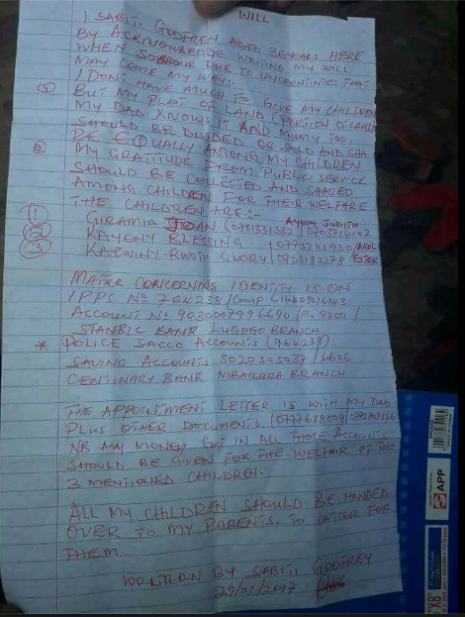 WILL
I SABITI GODFREY AGED 36 YEARS HERE
BY ACKNOWLEDGE WRITING MY WILL
WHEN SOBBOUR DUE TO UNCERTINITIES THAT
MAY COME MY WAY:-
I DON'T HAVE MUCH TO GIVE MY CHILDREN
BUT MY PLOT OF LAND (PORTION OF LAND)
MY DAD KNOWS IT AND MUMY TOO.
SHOULD BE DIVIDED OR SOLD AND SHA
RE EQUALLY AMONG MY CHILDREN
MY GRATITUDE FROM PUBLIC SERVICE
SHOULD BE COLLECTED AND SHARED
AMONG CHILDREN FOR THEIR WELFARE
THE CHILDREN ARE:-
① GIRAMIA JOAN JUDITH
② KAYENY BLESSING
③ KAEWINY RWOTH GLORY ESTER
MATTER CONCERNING IDENTITY IS ON
IPPS No 764238/COMP
ACCOUNT No
STANBIC BANK LUGOGO BRANCH
* POLICE SACCO ACCOUNTS
SAVING ACCOUNTS
CENTINARY BANK MBARARA BRANCH
THE APPOINTMENT LETTER IS WITH MY DAD
PLUS OTHER DOCUMENTS.
NB ANY MONEY GOT IN ALL THOSE ACCOUNTS
SHOULD BE GIVEN FOR THE WELFAR OF THE
3 MENTIONED CHILDREN.
ALL MY CHILDREN SHOULD BE HANDED
OVER TO MY PARENTS. TO CATTER FOR
THEM.
WRITTEN BY SABITI GODFREY
29/01/2017
APP